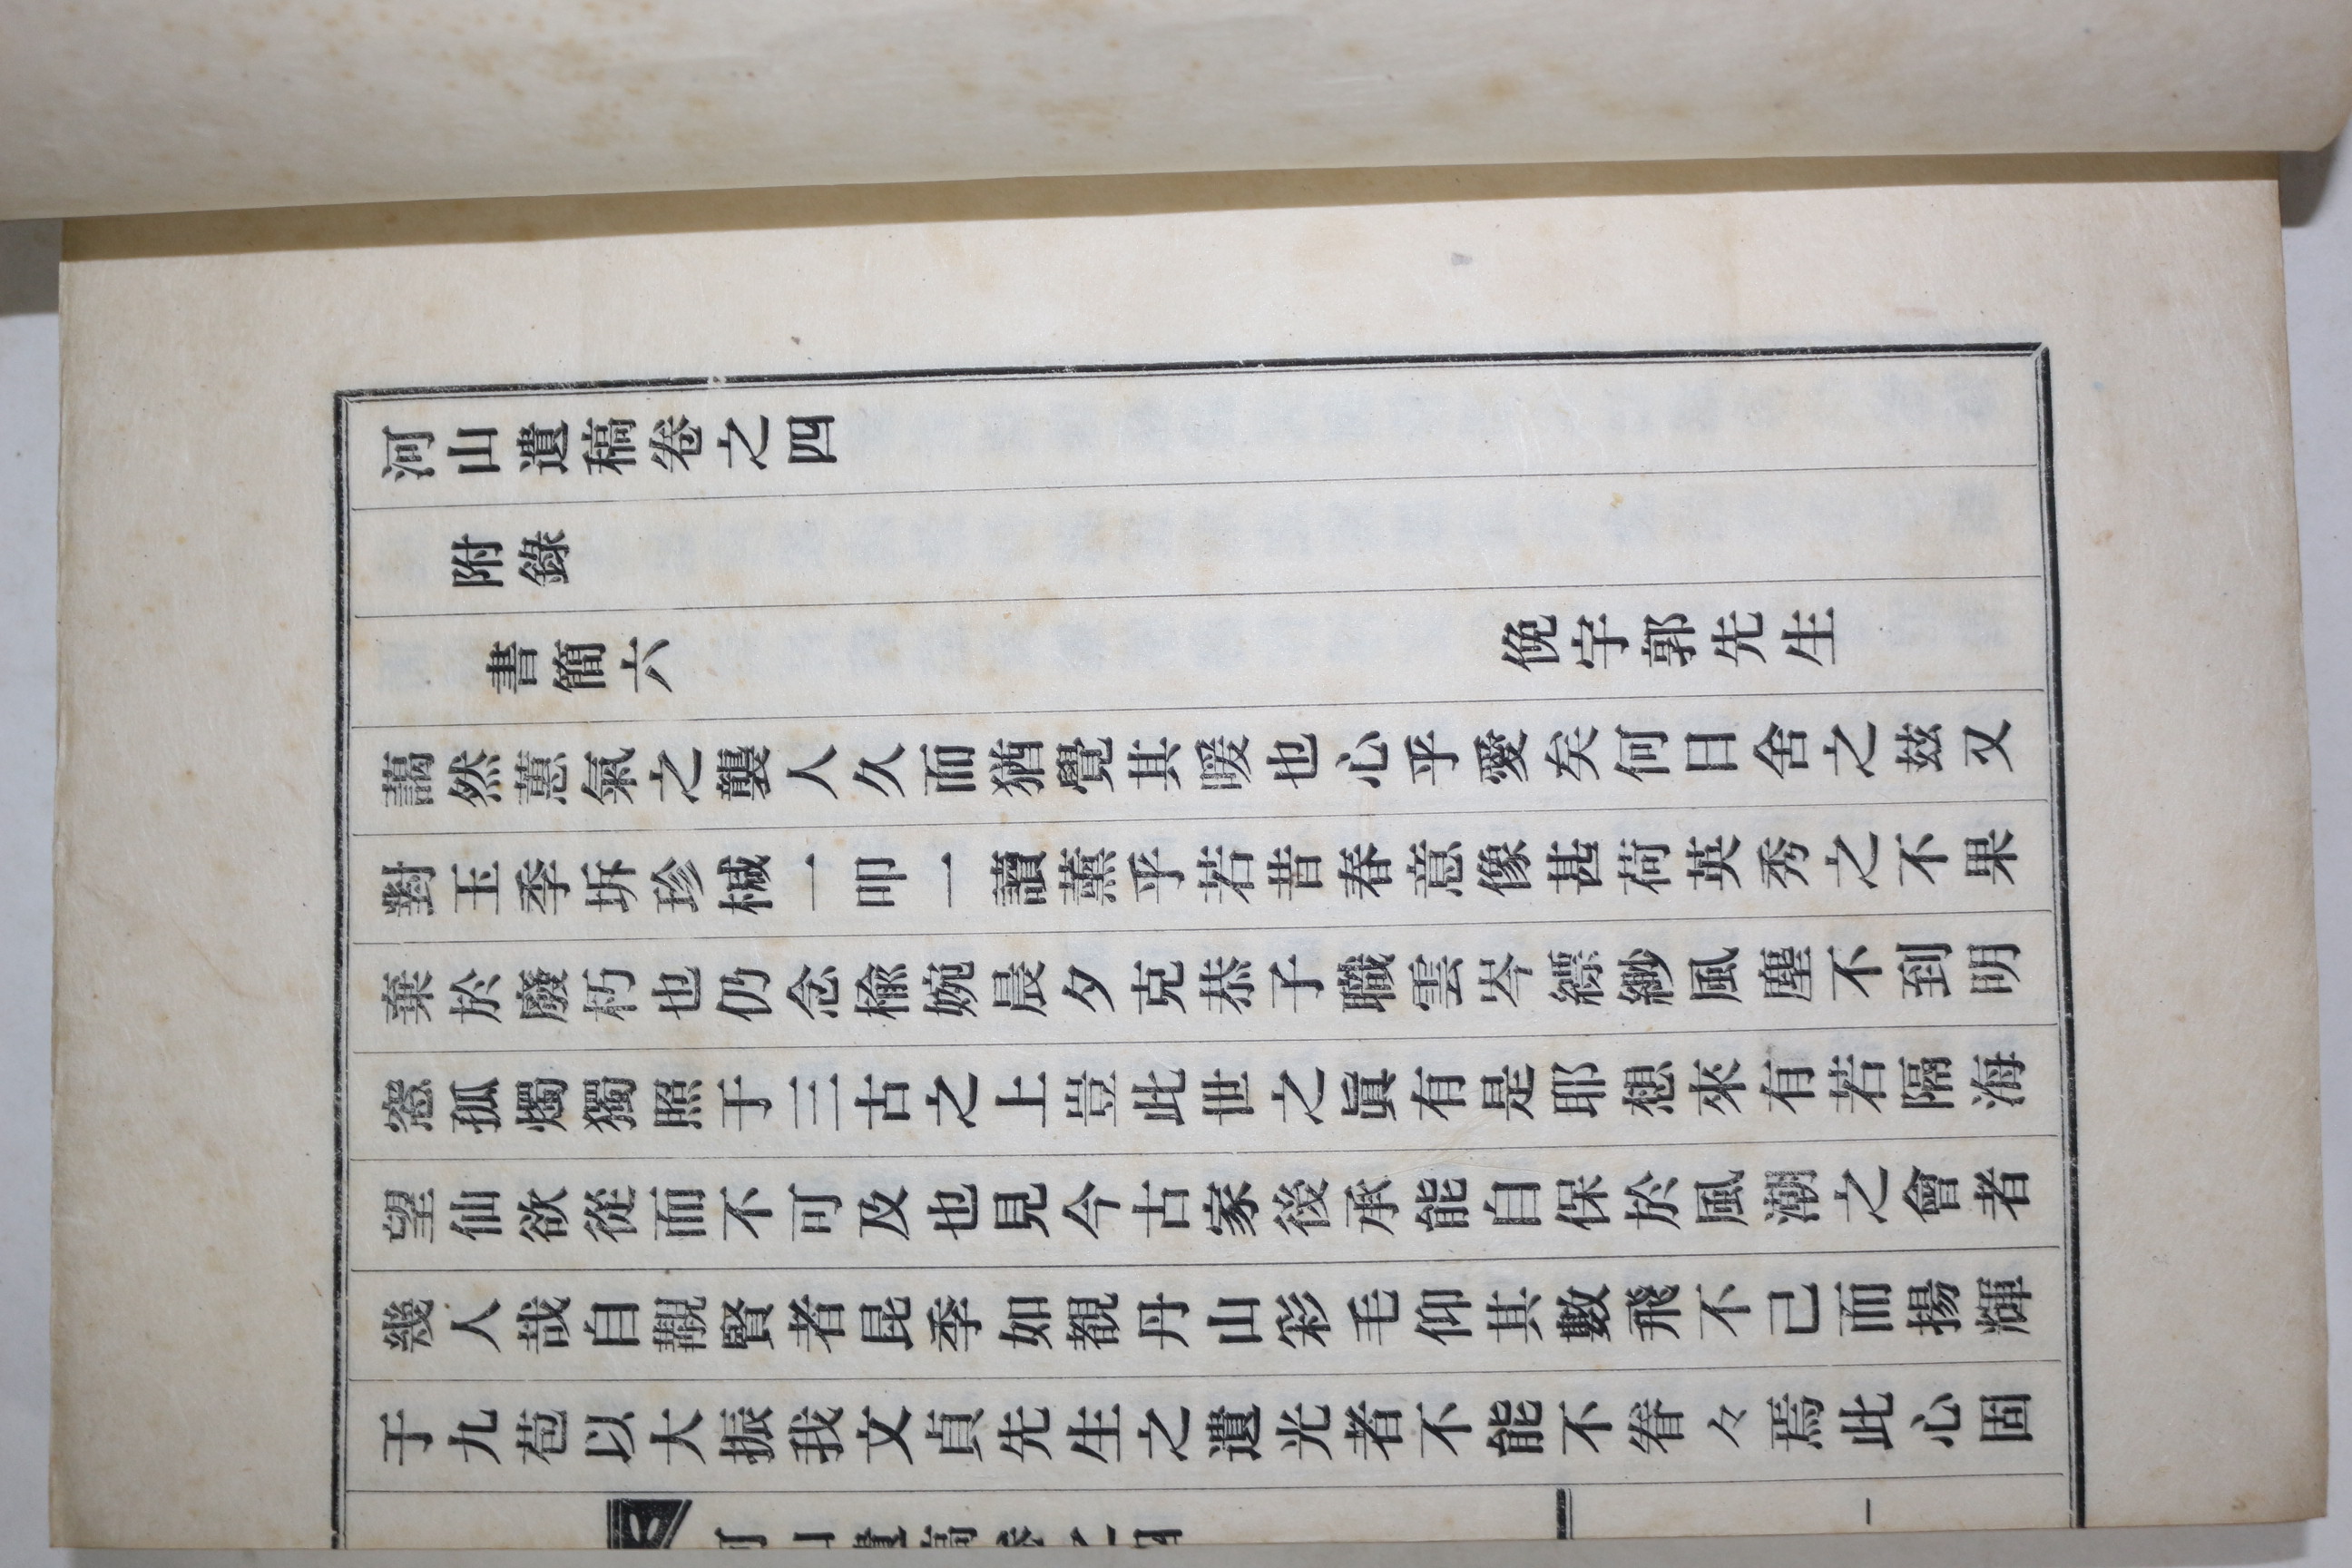 河山遺稿卷之四
附錄
書簡六 俛宇郭先生
藹然蕙氣之襲人久而猶覺其暖也心乎愛矣何日舍之玆又
對玉季坼珍椷一叩一讀薰乎若昔春意像甚荷英秀之不果
棄於廢朽也仍念楡婉晨夕克恭子職雲岑縹緲風塵不到明
窓孤燭獨照于三古之上豈此世之眞有是耶想來有若隔海
望仙欲從而不可及也見今古家後承能自保於風潮之會者
幾人哉自覯賢者昆季如覩丹山彩毛仰其數飛不已而揚輝
于九苞以大振我文貞先生之遺光者不能不眷々焉此心固
河山遺稿卷之四 一